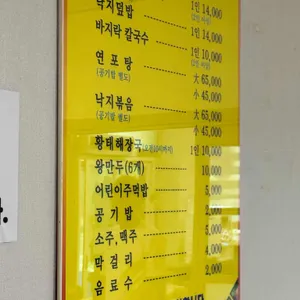 낙지덮밥 1인 14,000
바지락 칼국수 1인 14,000
1인 10,000
연 포 탕 大 65,000
(공기밥 별도) 小 45,000
낙지볶음 大 65,000
(공기밥 별도) 小 45,000
황태해장국 1인 10,000
왕만두(6개) 10,000
어린이주먹밥 5,000
공 기 밥 2,000
소주, 맥주 5,000
막 걸 리 4,000
음 료 수 2,000